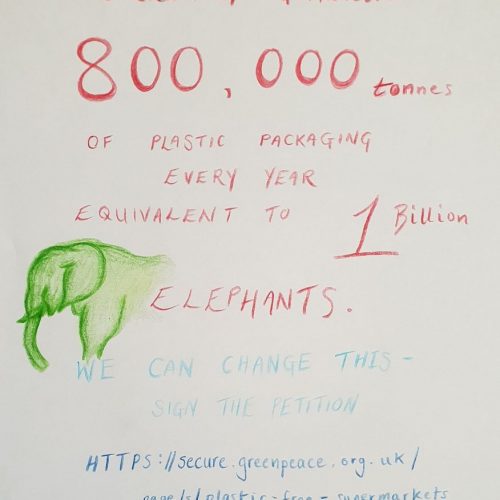 800,000 tonnes
OF PLASTIC PACKAGING
EVERY YEAR
EQUIVALENT TO 1 Billion
ELEPHANTS.
WE CAN CHANGE THIS-
SIGN THE PETITION
HTTPS://secure.greenpeace.org.uk/
page/s/plastic-free-supermarkets